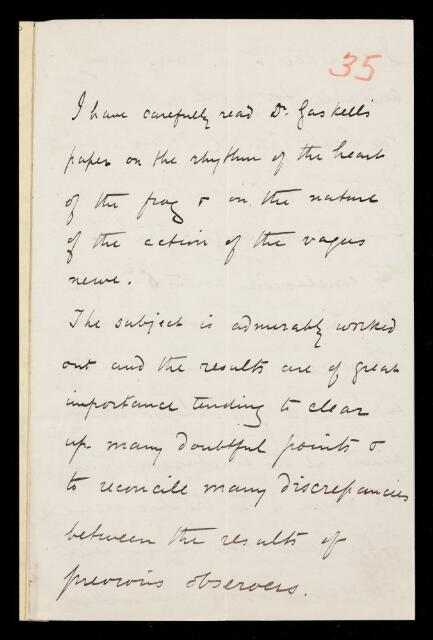 35
I have carefully read Dr. Gaskell's
paper on the rhythm of the heart
of the frog & on the nature
of the action of the vagus
nerve.
The subject is admirably worked
out and the results are of great
importance tending to clear
up many doubtful points &
to reconcile many discrepancies
between the results of
previous observers.